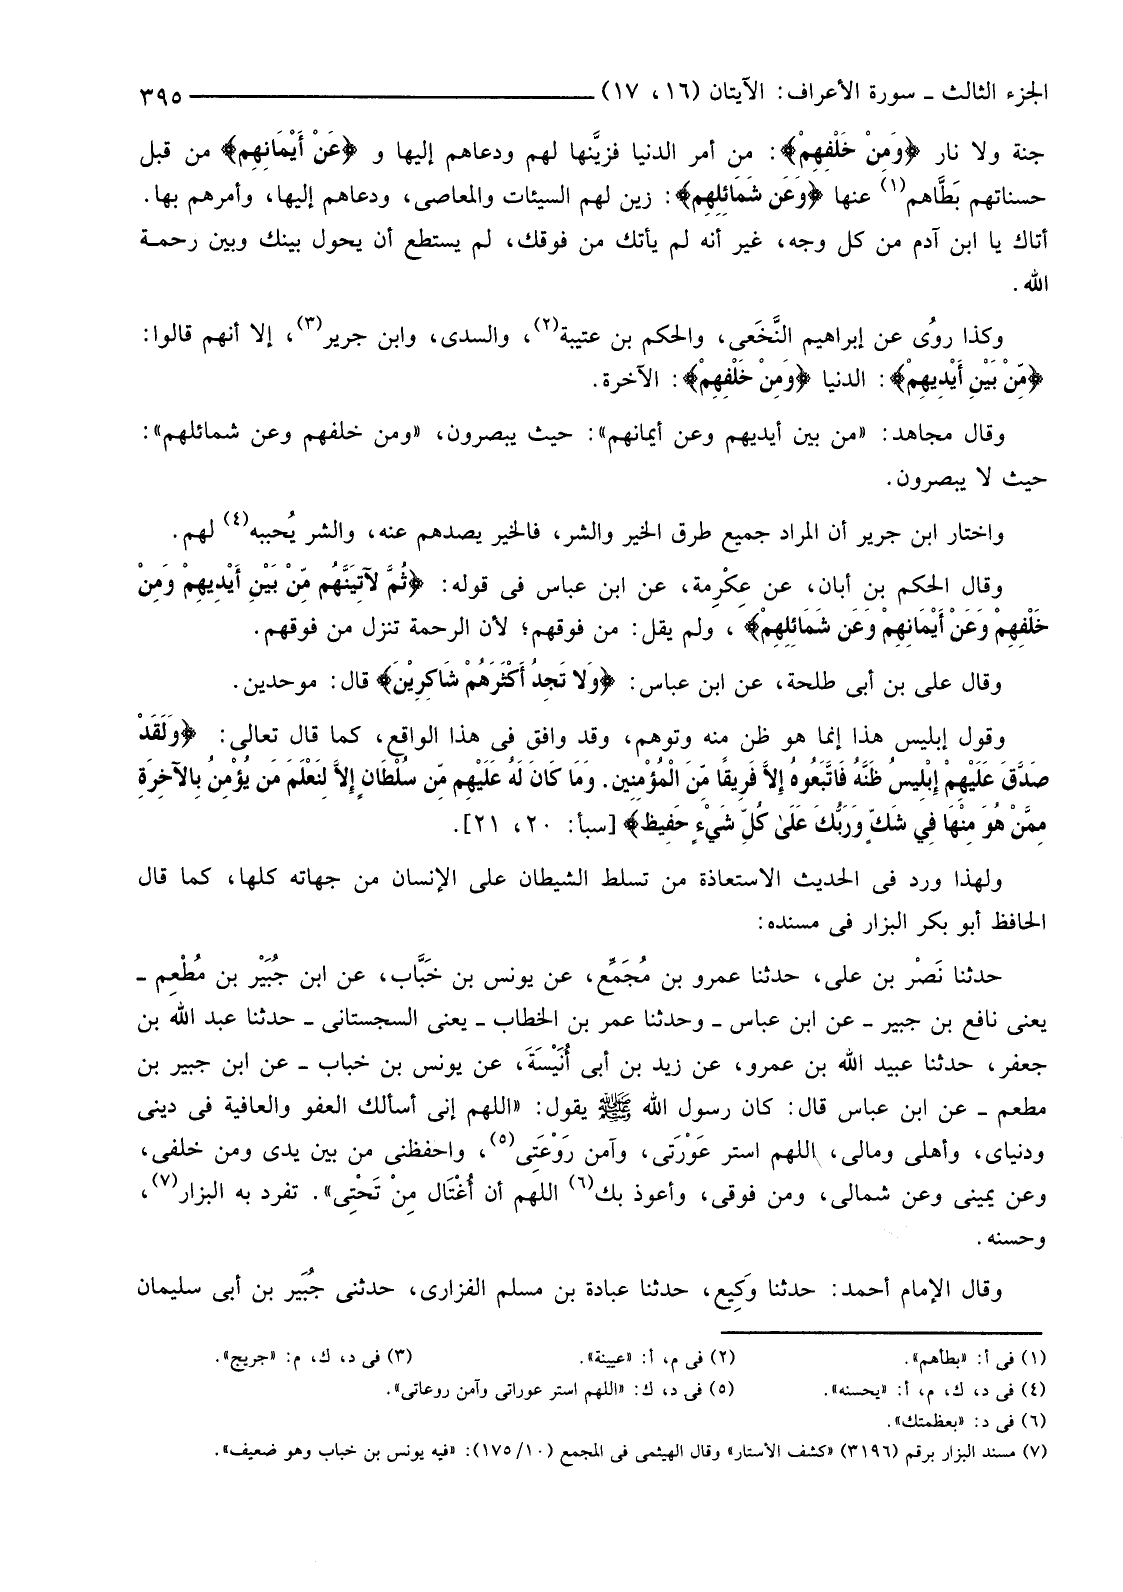 الجزء الثالث ـ سورة الأعراف: الآيتان (١٦ ، ١٧) ٣٩٥
جنة ولا نار ﴿وَمِنْ خَلْفِهِمْ﴾: من أمر الدنيا فزيَّنها لهم ودعاهم إليها و ﴿عَنْ أَيْمَانِهِم﴾ من قبل
حسناتهم بَطَّاهم(١) عنها ﴿وَعَن شَمَائِلِهِمْ﴾: زين لهم السيئات والمعاصى، ودعاهم إليها، وأمرهم بها.
أتاك يا ابن آدم من كل وجه، غير أنه لم يأتك من فوقك، لم يستطع أن يحول بينك وبين رحمة
الله.
وكذا روُى عن إبراهيم النَّخَعى، والحكم بن عتيبة(٢)، والسدى، وابن جرير(٣)، إلا أنهم قالوا:
﴿مِّنْ بَيْنِ أَيْدِيهِمْ﴾: الدنيا ﴿وَمِنْ خَلْفِهِمْ﴾: الآخرة.
وقال مجاهد: «من بين أيديهم وعن أيمانهم»: حيث يبصرون، «ومن خلفهم وعن شمائلهم»:
حيث لا يبصرون.
واختار ابن جرير أن المراد جميع طرق الخير والشر، فالخير يصدهم عنه، والشر يُحببه(٤) لهم.
وقال الحكم بن أبان، عن عِكْرِمة، عن ابن عباس فى قوله: ﴿ثُمَّ لآتِيَنَّهُم مِّنْ بَيْنِ أَيْدِيهِمْ وَمِنْ
خَلْفِهِمْ وَعَنْ أَيْمَانِهِمْ وَعَن شَمَائِلِهِمْ﴾ ، ولم يقل: من فوقهم؛ لأن الرحمة تنزل من فوقهم.
وقال على بن أبى طلحة، عن ابن عباس: ﴿وَلا تَجِدُ أَكْثَرَهُمْ شَاكِرِيْنَ﴾ قال: موحدين.
وقول إبليس هذا إنما هو ظن منه وتوهم، وقد وافق فى هذا الواقع، كما قال تعالى: ﴿وَلَقَدْ
صَدَّقَ عَلَيْهِمْ إِبْلِيسُ ظَنَّهُ فَاتَّبَعُوهُ إِلاَّ فَرِيقًا مِّنَ الْمُؤْمِنِين. وَمَا كَانَ لَهُ عَلَيْهِم مِّن سُلْطَانٍ إِلاَّ لِنَعْلَمَ مَن يُؤْمِنُ بِالآخِرَةِ
مِمَّنْ هُوَ مِنْهَا فِي شَكٍّ وَرَبُّكَ عَلَىٰ كُلِّ شَيْءٍ حَفِيظ﴾ [سبأ: ٢٠، ٢١].
ولهذا ورد فى الحديث الاستعاذة من تسلط الشيطان على الإنسان من جهاته كلها، كما قال
الحافظ أبو بكر البزار فى مسنده:
حدثنا نَصْر بن على، حدثنا عمرو بن مُجَمِّع، عن يونس بن خَبَّاب، عن ابن جُبَيْر بن مُطْعِم ـ
يعنى نافع بن جبير ـ عن ابن عباس ـ وحدثنا عمر بن الخطاب ـ يعنى السجستانى ـ حدثنا عبد الله بن
جعفر، حدثنا عبيد الله بن عمرو، عن زيد بن أبى أُنَيْسَةَ، عن يونس بن خباب ـ عن ابن جبير بن
مطعم ـ عن ابن عباس قال: كان رسول الله ﷺ يقول: «اللهم إنى أسألك العفو والعافية فى دينى
ودنياى، وأهلى ومالى، اللهم استر عَوْرَتى، وآمن رَوْعَتِى(٥)، واحفظنى من بين يدى ومن خلفى،
وعن يمينى وعن شمالى، ومن فوقى، وأعوذ بك(٦) اللهم أن أُغْتَال مِنْ تَحْتِى». تفرد به البزار(٧)،
وحسنه.
وقال الإمام أحمد: حدثنا وَكِيع، حدثنا عبادة بن مسلم الفزارى، حدثنى جُبَير بن أبى سليمان
(١) فى أ: «بطأهم». (٢) فى م، أ: «عيينة». (٣) فى د، ك، م: «جريج».
(٤) فى د، ك، م، أ: «يحسنه». (٥) فى د، ك: «اللهم استر عوراتى وآمن روعاتى».
(٦) فى د: «بعظمتك».
(٧) مسند البزار برقم (٣١٩٦) «كشف الأستار» وقال الهيثمى فى المجمع (١٠/ ١٧٥): «فيه يونس بن خباب وهو ضعيف».